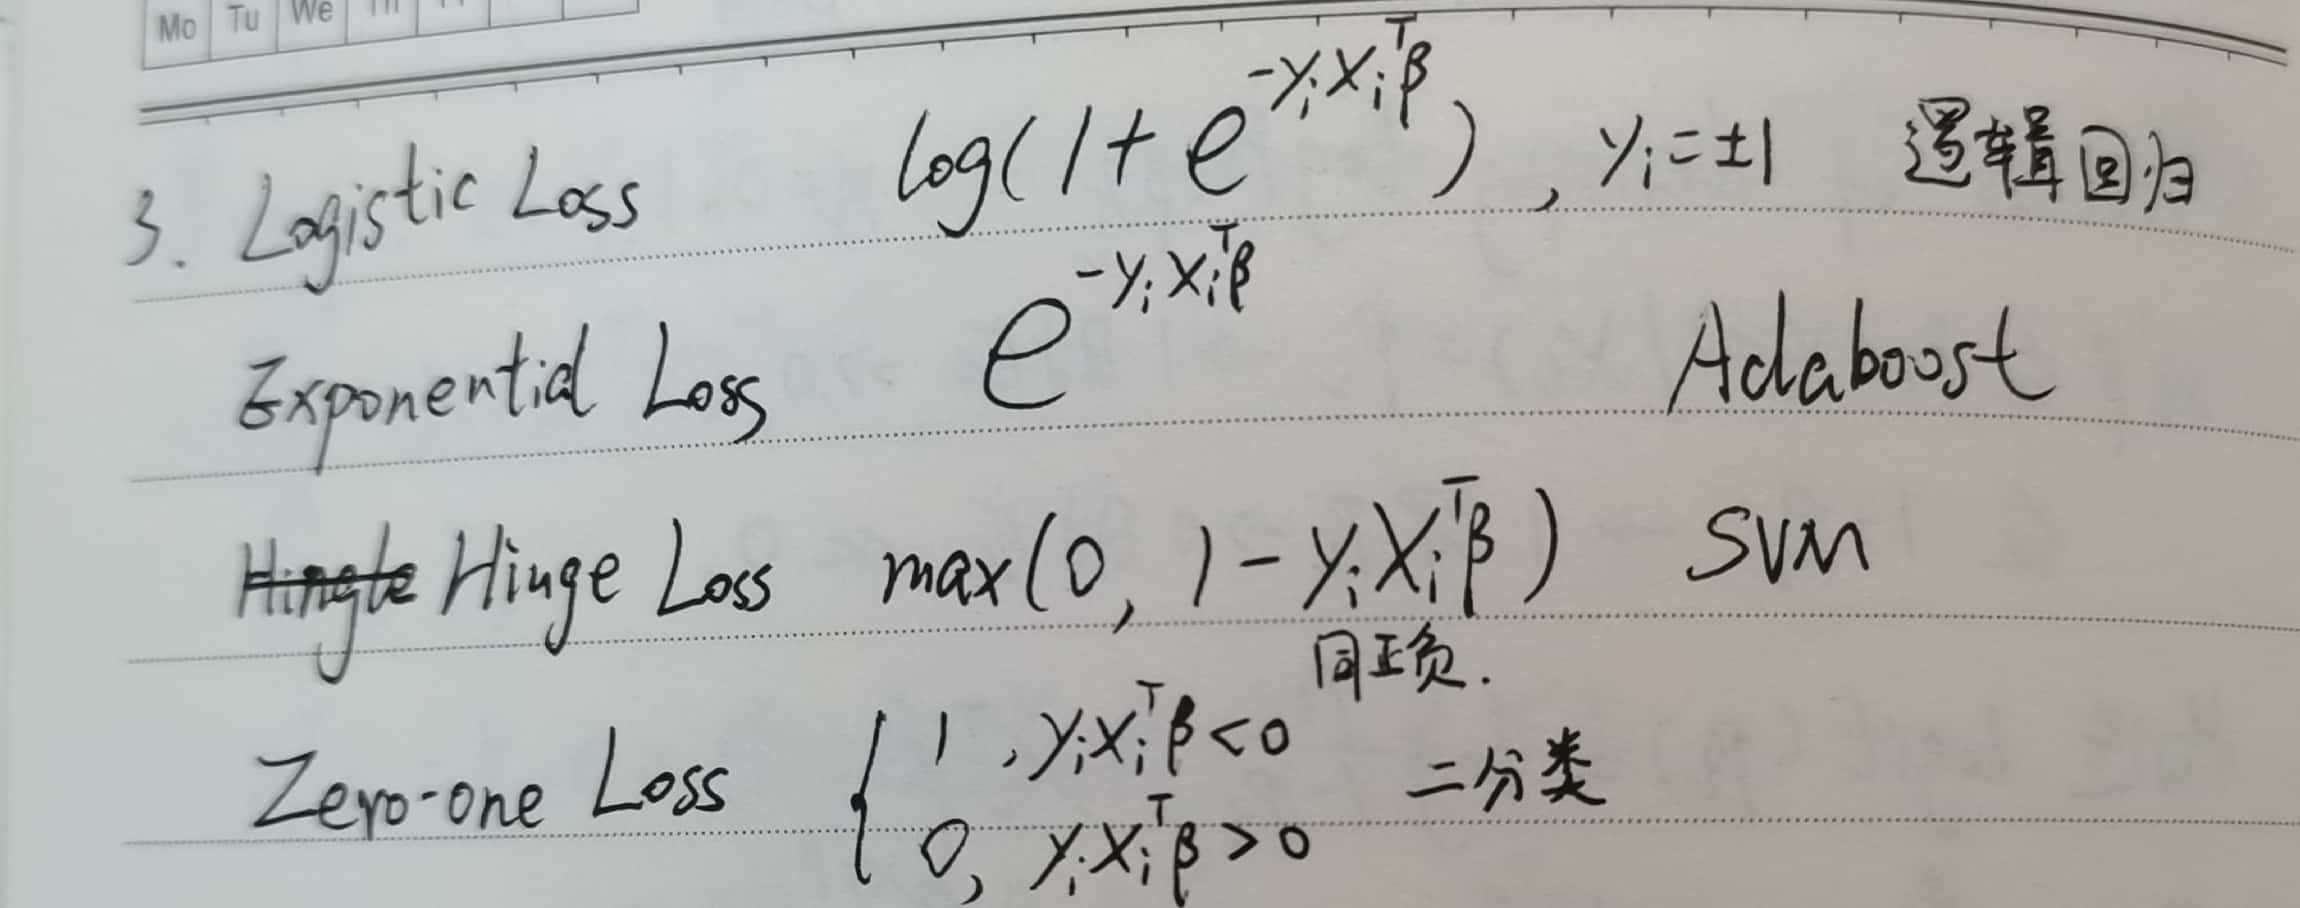 Mo Tu We Th
3. Logistic Loss log(1+e^{-y_i X_i^T β}), y_i=±1 逻辑回归
Exponential Loss e^{-y_i X_i^T β} Adaboost
Hingle Hinge Loss max(0, 1-y_i X_i^T β) SVM
同正负.
Zero-one Loss { 1, y_i X_i^T β<0 二分类
0, y_i X_i^T β>0